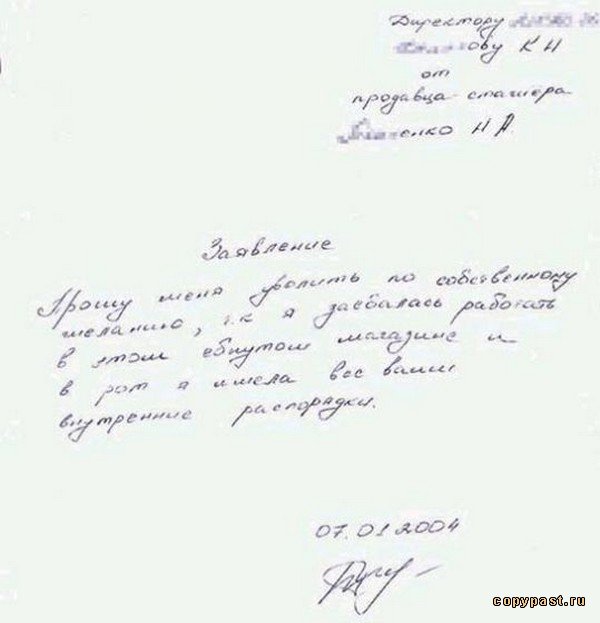 Директору
ову К Н
от
продавца-стажёра
енко Н А
Заявление
Прошу меня уволить по собственному
желанию, т.к я заебалась работать
в этом ебнутом магазине и
в рот я имела все ваши
внутренние распорядки.
07.01.2004
copypast.ru